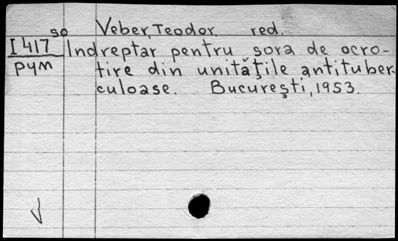 so Veber, Teodor red.
I 417 Indreptar pentru sora de ocro-
рум tire din unităţile antituber-
culoase. Bucureşti, 1953.